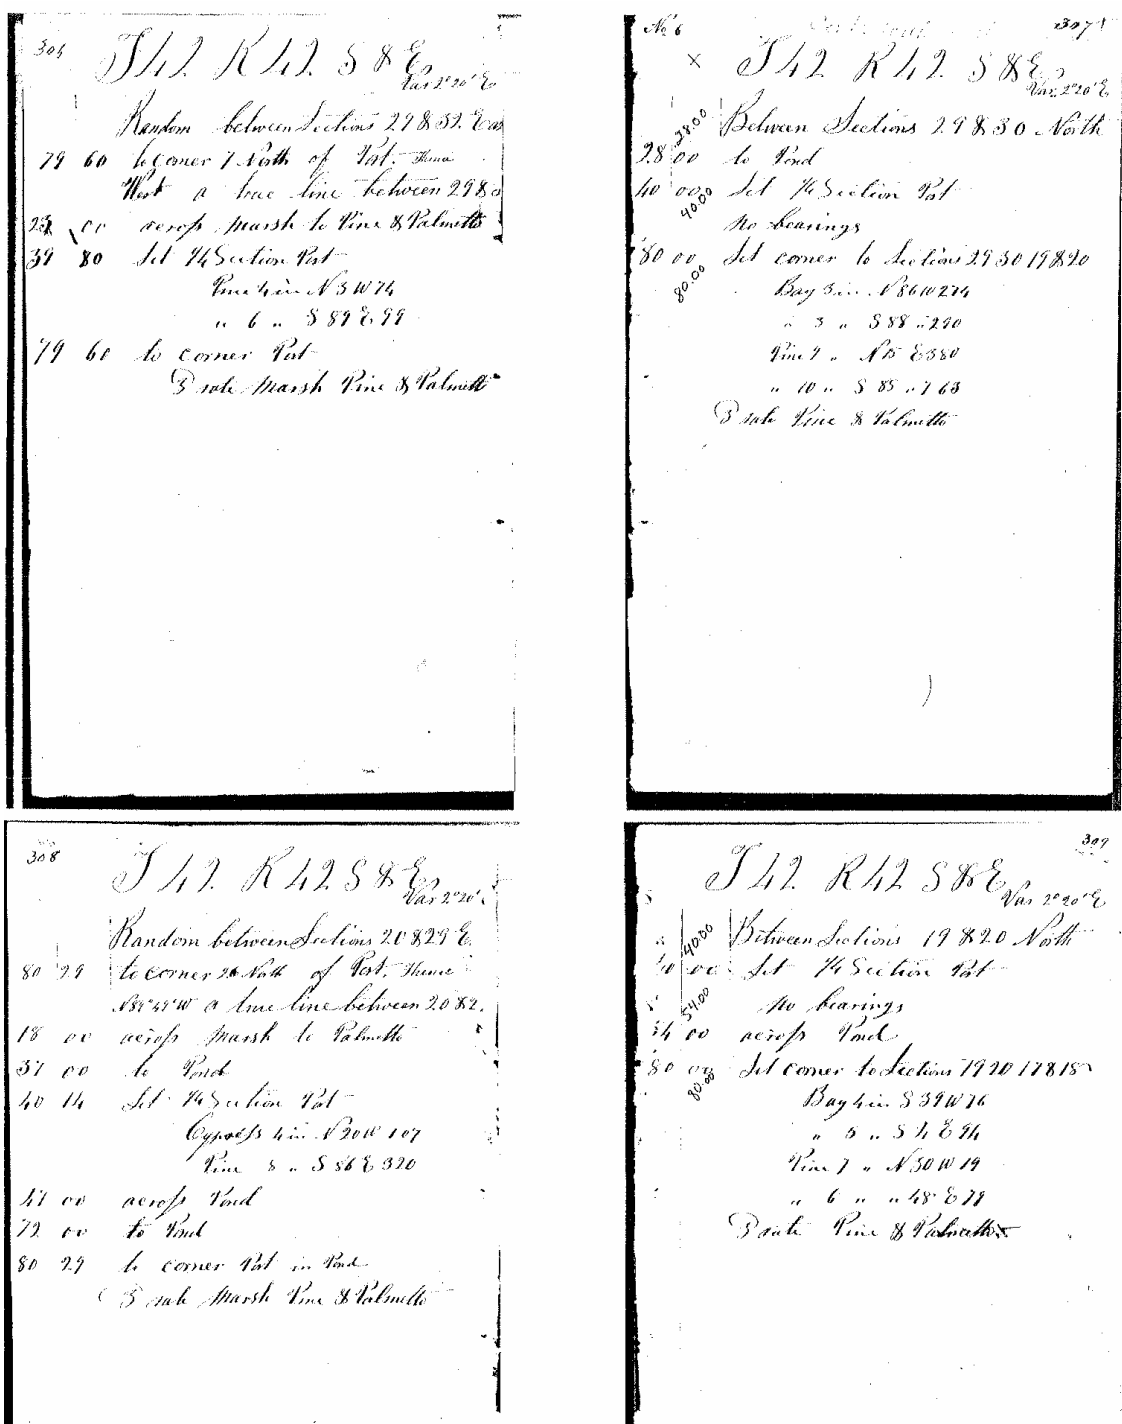 306
T 42. R 42. S & E.
Var 2°20' E
Random between Sections 29 & 32. East
79 60 to corner 7 North of Post. Thence
West a true line between 29 &
00 across Marsh to Pine & Palmetto
39 80 Set 1/4 Section Post
Pine 4 in N 3 W 74
" 6 " S 89 E 99
79 60 to corner Post
3 rate Marsh Pine & Palmetto
No 6
307
x T 42. R 42. S & E.
Var. 2°20' E
28.00 Between Sections 29 & 30 North
28 00 to Pond
40 00 Set 1/4 Section Post
40.00 No bearings
80 00 Set corner to Sections 29 30 19 & 20
80.00 Bay 3 in. N 86 W 274
" 3 " S 88 " 290
Pine 9 " N 15 E 380
" 10 " S 85 " 163
3 rate Pine & Palmetto
308
T 42. R 42 S & E.
Var 2°20'
Random between Sections 20 & 29 E.
80 29 to corner 26 North of Post. Thence
N 89°49' W a true line between 20 & 2
18 00 across Marsh to Palmetto
37 00 to Pond
40 14 Set 1/4 Section Post
Cypress 4 in N 20 W 107
Pine 8 " S 86 E 320
41 00 across Pond
79 00 to Pond
80 29 to corner Post in Pond
3 rate Marsh Pine & Palmetto
309
T 42. R 42 S & E
Var 2°20' E
40.00 Between Sections 19 & 20 North
40 00 Set 1/4 Section Post
54.00 No bearings
54 00 across Pond
80 00 Set corner to Sections 19 20 17 & 18
80.00 Bay 4 in S 39 W 76
" 5 " S 4 E 94
Pine 7 " N 50 W 19
" 6 " " 48 E 79
3 rate Pine & Palmetto